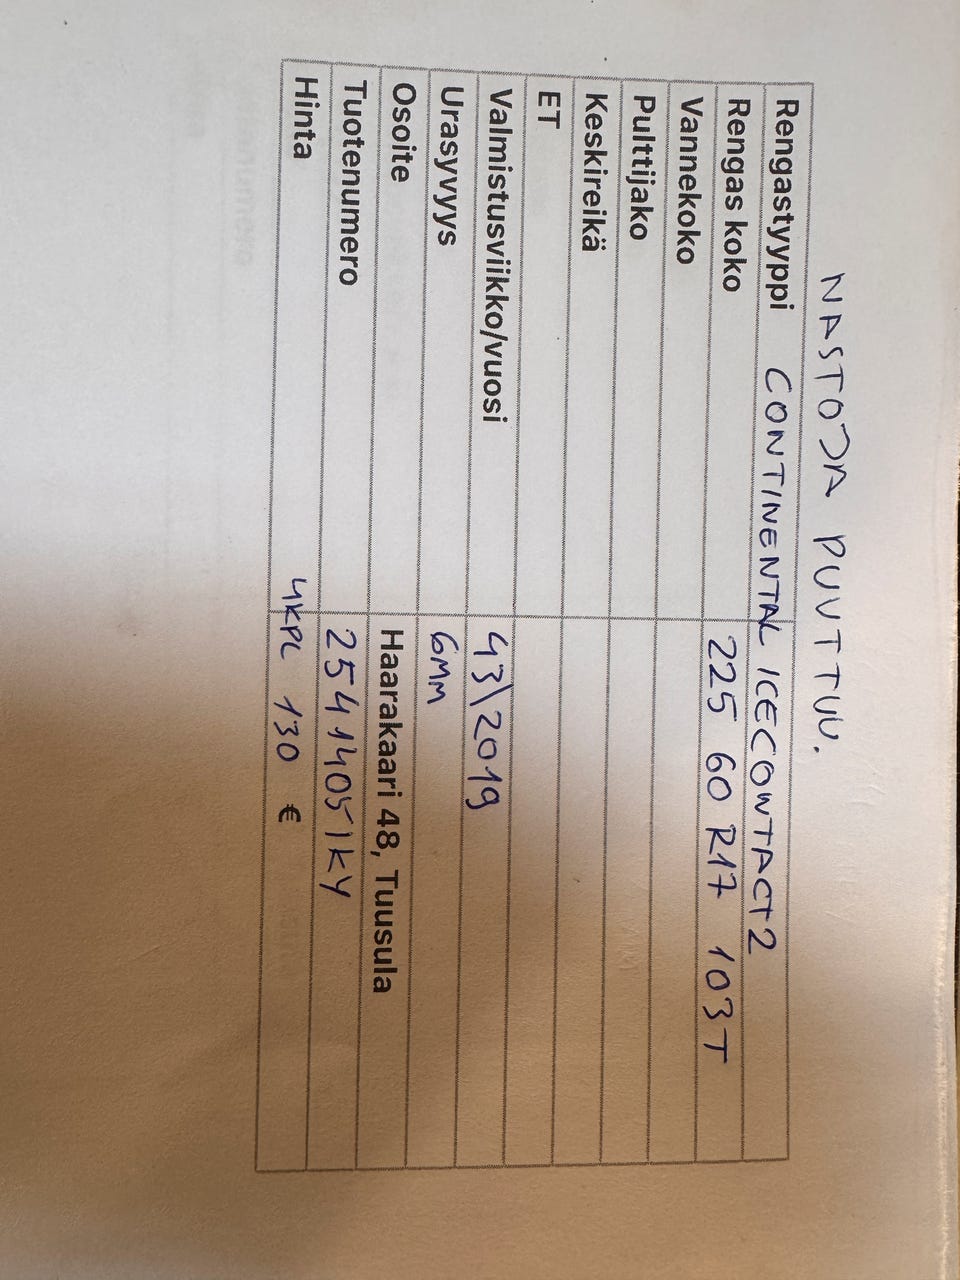 NASTOJA PUUTTUU.
Rengastyyppi CONTINENTAL ICECONTACT2
Rengas koko 225 60 R17 103T
Vannekoko
Pulttijako
Keskireikä
ET
Valmistusviikko/vuosi 43\2019
Urasyvyys 6MM
Osoite Haarakaari 48, Tuusula
Tuotenumero 25414051KY
Hinta 4KPL 130 €